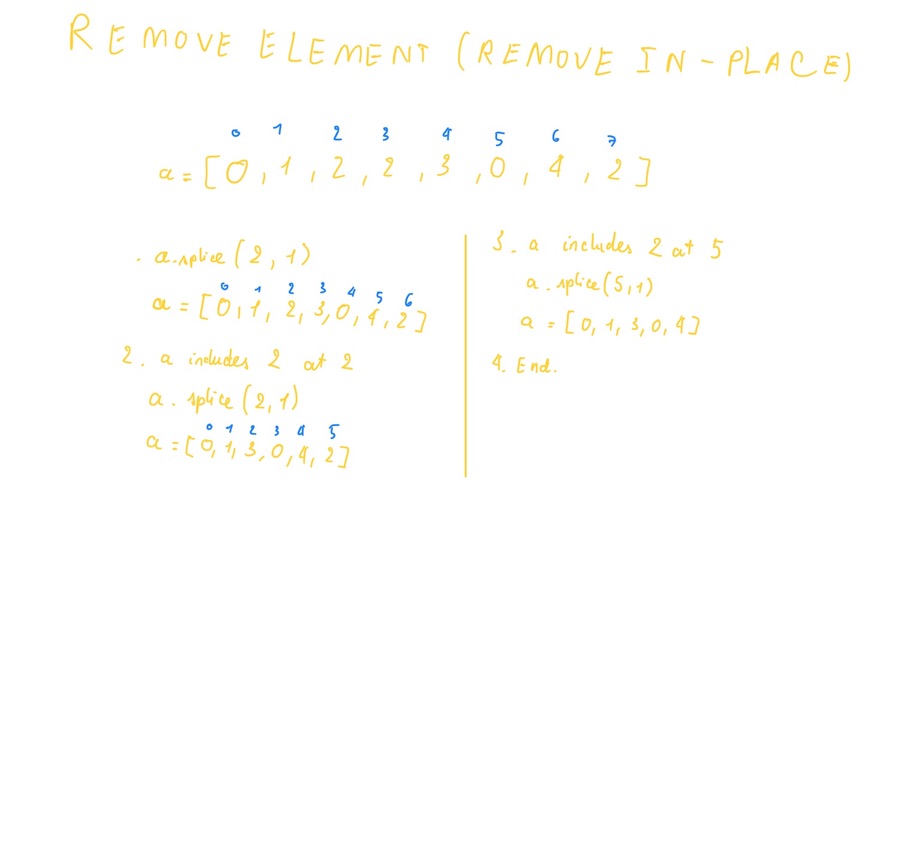 REMOVE ELEMENT (REMOVE IN-PLACE)
0 1 2 3 4 5 6 7
a = [0, 1, 2, 2, 3, 0, 4, 2]
. a.splice(2, 1)
0 1 2 3 4 5 6
a = [0, 1, 2, 3, 0, 4, 2]
2. a includes 2 at 2
a. splice(2, 1)
0 1 2 3 4 5
a = [0, 1, 3, 0, 4, 2]
3. a includes 2 at 5
a. splice(5, 1)
a = [0, 1, 3, 0, 4]
4. End.